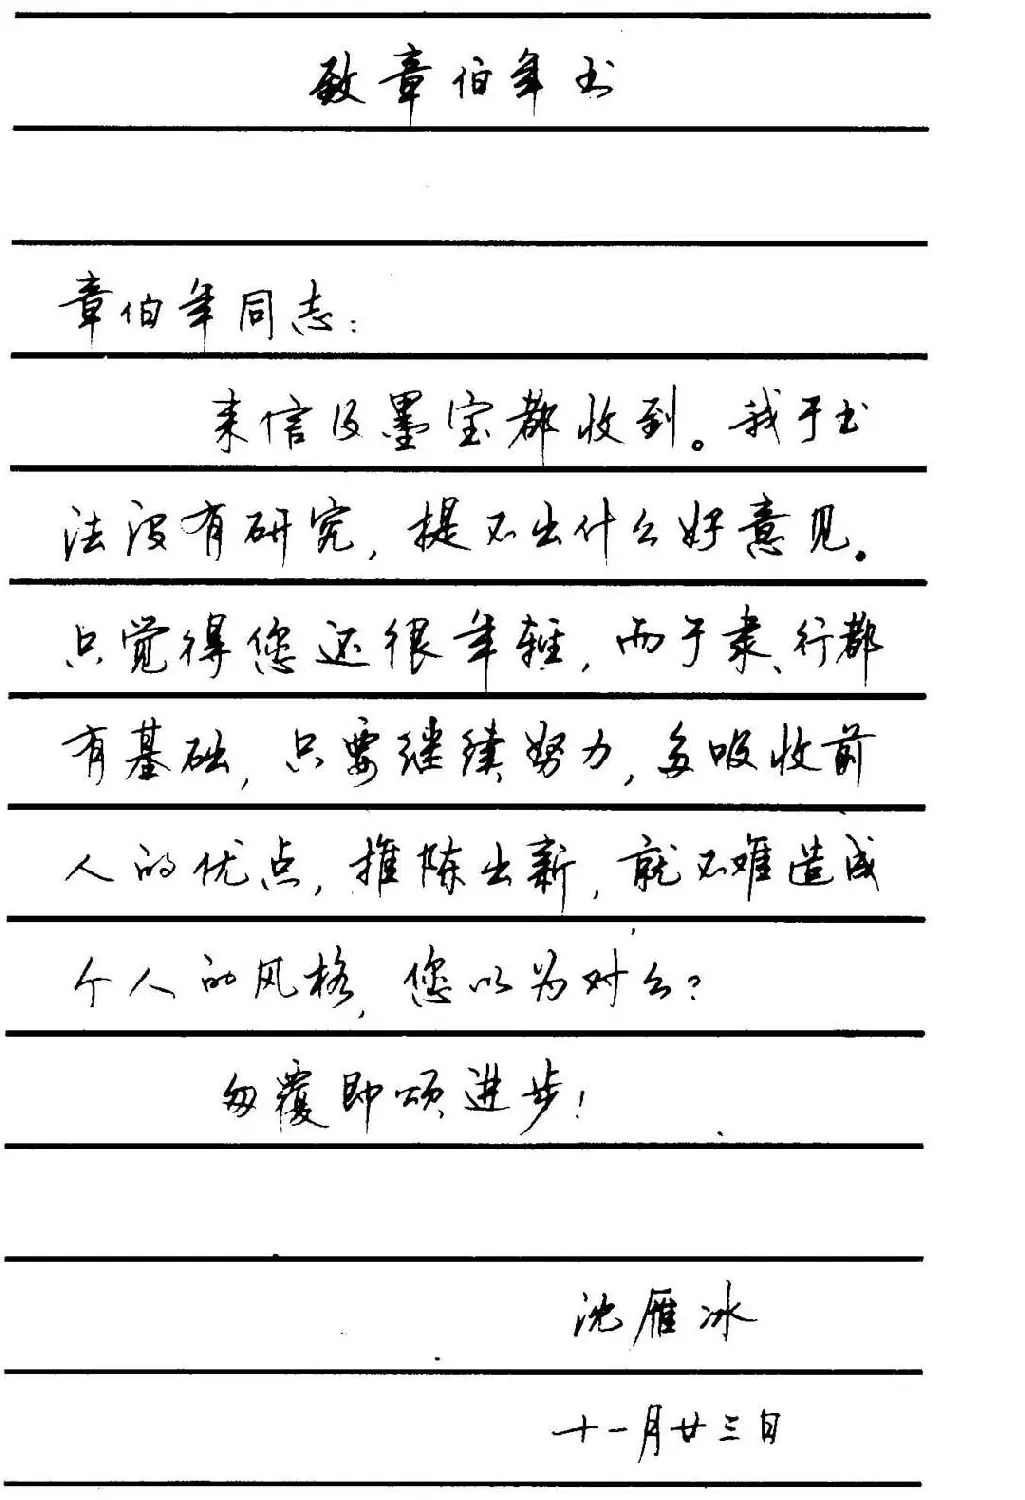 致章伯年书
章伯年同志：
来信及墨宝都收到。我于书
法没有研究，提不出什么好意见。
只觉得您还很年轻，而于隶、行都
有基础，只要继续努力，多吸收前
人的优点，推陈出新，就不难造成
个人的风格，您以为对么？
匆覆即颂进步！
沈雁冰
十一月廿三日